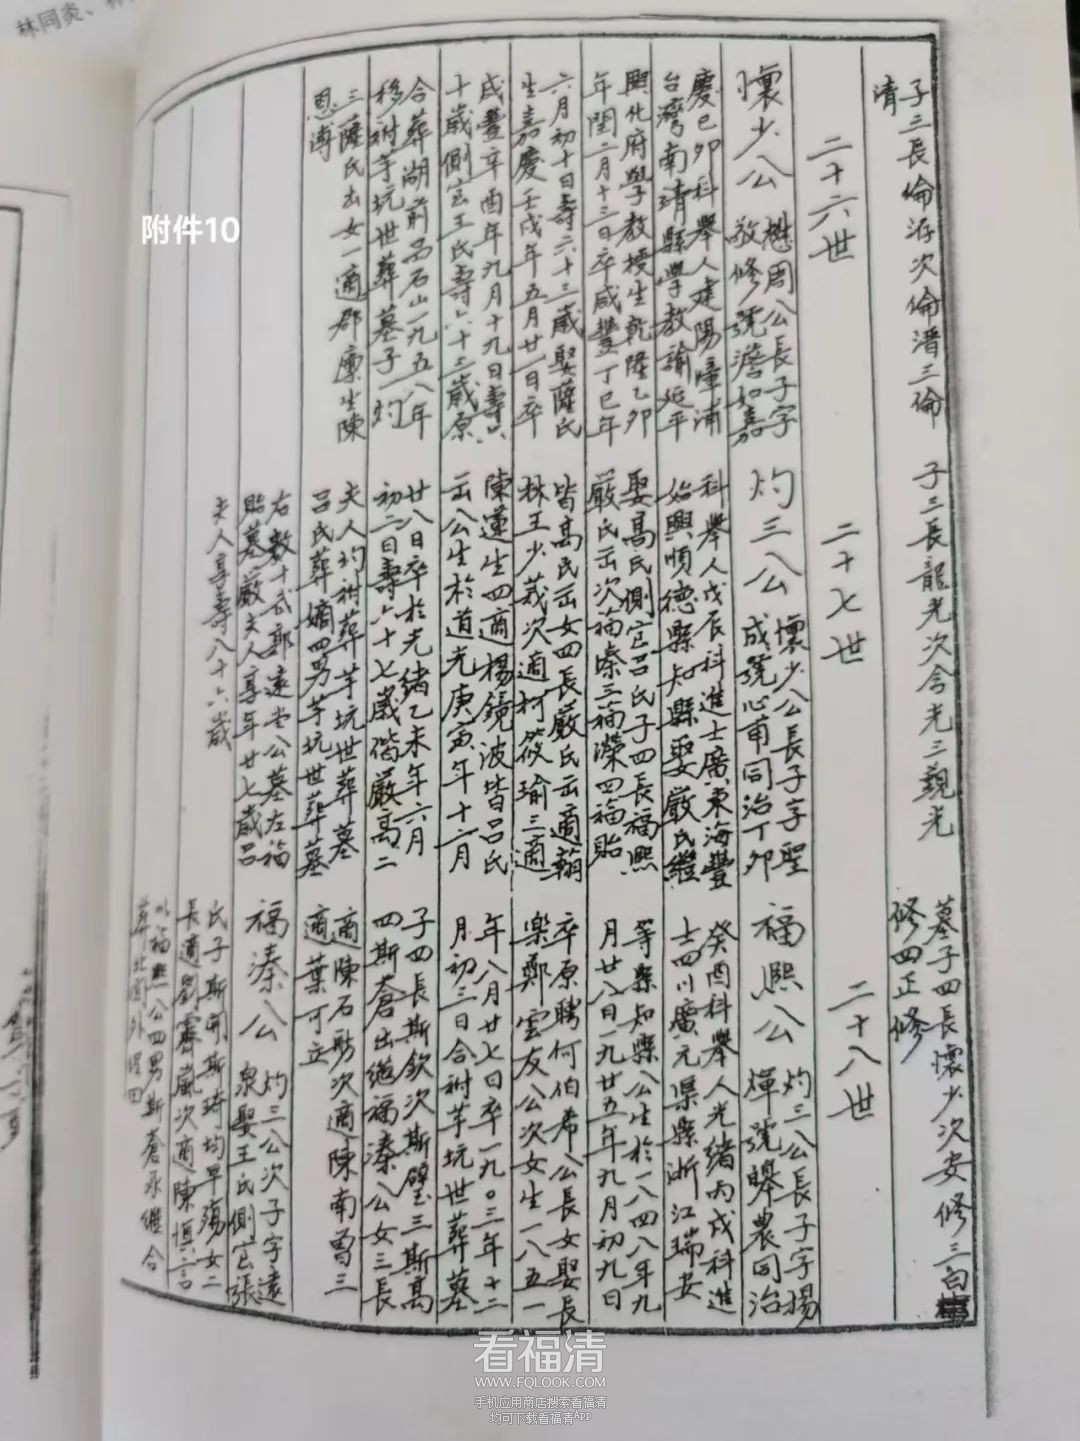 林同炎、林
附件10
子三長倫浯次倫潛三倫
清
二十六世
懷少公
懋周公長子字
敬修號澹如嘉
慶己卯科舉人建陽漳浦
台灣南靖縣學教諭延平
興化府學教授生乾隆乙卯
年閏二月十三日卒咸豐丁巳年
六月初十日壽六十三歲娶薩氏
生嘉慶壬戌年五月廿一日卒
咸豐辛酉年九月十九日壽六
十歲側室王氏壽六十三歲原
合葬湖前呂石山一九五八年
移祔芋坑世葬墓子一灼
三薩氏出女一適郡廩生陳
恩溥
子三長龍光次含光三觀光
二十七世
灼三公
懷少公長子字聖
成號心甫同治丁卯
科舉人戊辰科進士廣東海豐
始興順德縣知縣娶嚴氏繼
娶高氏側室呂氏子四長福熙
嚴氏出次福溱三福濚四福貽
皆高氏出女四長嚴氏出適翰
林王少莪次適柯筱瑜三適
陳蓮生四適楊鏡波皆呂氏
出公生於道光庚寅年十二月
廿八日卒於光緒乙未年六月
初二日壽六十七歲偕嚴高二
夫人灼祔葬芋坑世葬墓
呂氏葬嫡四男芋坑世葬墓
右數十武鄭遠堂公墓左福
貽墓嚴夫人享年廿七歲呂
夫人享壽八十六歲
墓子四長懷少次安修三白
修四正修
二十八世
福熙公
灼三公長子字揚
煇號皞農同治
癸酉科舉人光緒丙戌科進
士四川廣元渠縣浙江瑞安
等縣知縣公生於一八四八年九
月廿八日一九廿五年九月初九日
卒原聘何伯希公長女娶長
樂鄭雲友公次女生一八五一
年八月廿七日卒一九〇三年十二
月初三日合祔芋坑世葬墓
子四長斯欽次斯璧三斯高
四斯蒼出繼福溱公女三長
適陳石彤次適陳南雪三
適葉可立
福溱公
灼三公次子字遠
泉娶王氏側室張
氏子斯開斯琦均早殤女二
長適劉齋嵐次適陳恒六言
以福熙公四男斯蒼承繼合
葬北園外
看福清
WWW.FQLOOK.COM
手机应用商店搜索看福清
均可下载看福清APP